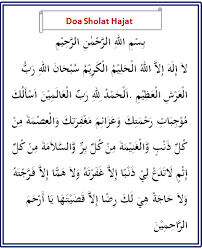 Doa Sholat Hajat
بِسْمِ اللهِ الرَّحْمٰنِ الرَّحِيْمِ
لاَ إِلٰهَ إِلاَّ اللهُ الْحَلِيْمُ الْكَرِيْمُ سُبْحَانَ اللهِ رَبُّ
الْعَرْشِ الْعَظِيْمِ .الْحَمْدُ لِلّٰهِ رَبِّ الْعَالَمِيْنَ اَسْأَلُكَ
مُوْجِبَاتِ رَحْمَتِكَ وَعَزَائِمَ مَغْفِرَتِكَ وَالْعِصْمَةَ مِنْ
كُلِّ ذَنْبٍ وَالْغَنِيْمَةَ مِنْ كُلِّ بِرٍّ وَالسَّلاَمَةَ مِنْ كُلِّ
إِثْمٍ لاَتَدَعْ لِيْ ذَنْبًا إِلاَّ غَفَرْتَهُ وَلاَ هَمًّا إِلاَّ فَرَّجْتَهُ
وَلاَ حَاجَةً هِيَ لَكَ رِضًا إِلاَّ قَضَيْتَهَا يَا أَرْحَمَ
الرَّاحِمِيْنَ